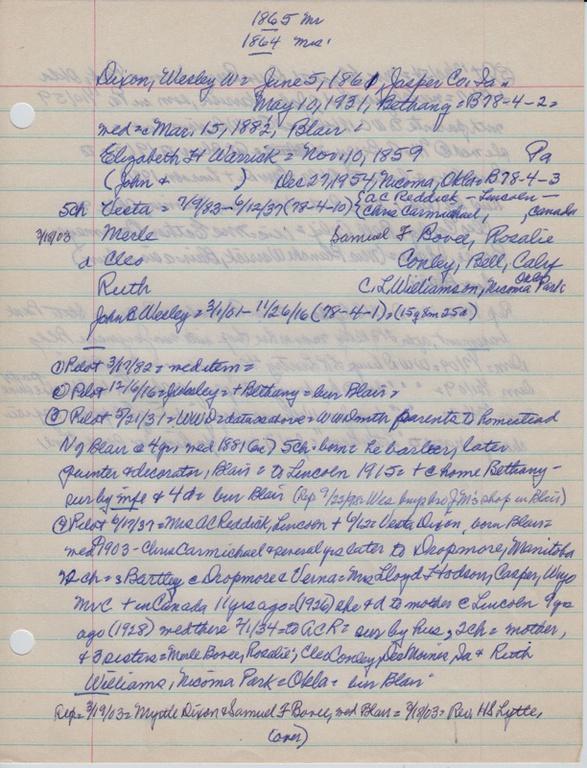 1865 Mr
1864 Mrs.
Dixon, Wesley W = June 5, 1861, Jasper Co. Ia =
May 10, 1931, Bethany = B78-4-2 =
med = c Mar. 15, 1882, Blair =
Elizabeth H Warrick = Nov. 10, 1859 Pa
(John & ) Dec 27, 1954, Nicoma, Okla = B78-4-3
5ch Veeta = 7/9/83 - 6/12/37 (78-4-10) {AC Reddick - Lincoln -
Chris Carmichael, , Canada
3/18/03 Merle Samuel F Bovee, Rosalie
a Cleo Conley, Bell, Calif
Ruth C. L. Williamson, Nicoma Park Okla
John B Wesley = 3/1/01 - 11/26/16 (78-4-1) = (15y 8m 25d)
① Pilot 3/17/82 = med item =
② Pilot 12/6/16 = J Wesley = + Bethany = bur Blair =
③ Pilot 5/21/31 = WW D = data as above = WW D with parents to homestead
N of Blair @ 4yrs med 1881 (sic) 5ch = born = he barber, later
painter & decorator, Blair = to Lincoln 1915 = + c home Bethany -
sur by wife & 4 d = bur Blair (Rep 9/22/98 = Wes buys bro JM's shop in Blair)
④ Pilot 6/17/37 = Mrs AC Reddick, Lincoln + 6/12 = Vesta Dixon, born Blair =
med 1903 - Chris Carmichael & several yrs later to Dropmore, Manitoba
ch = s Bartley c Dropmore & Verna = Mrs Lloyd Hodson, Casper, Wyo
Mr C + in Canada 11 yrs ago = (1926) she & d to mother c Lincoln 9 yrs
ago (1928) med there 7/1/34 = to ACR = sur by hus, 2ch = mother,
& 3 sisters = Merle Bovee, Rosalie; Cleo Conley, Des Moines, Ia & Ruth
Williams, Nicoma Park = Okla = bur Blair
Rep = 3/19/03 = Myrtle Dixon & Samuel F Bovee, med Blair = 3/18/03 = Rev. HS Lytle,
(over)